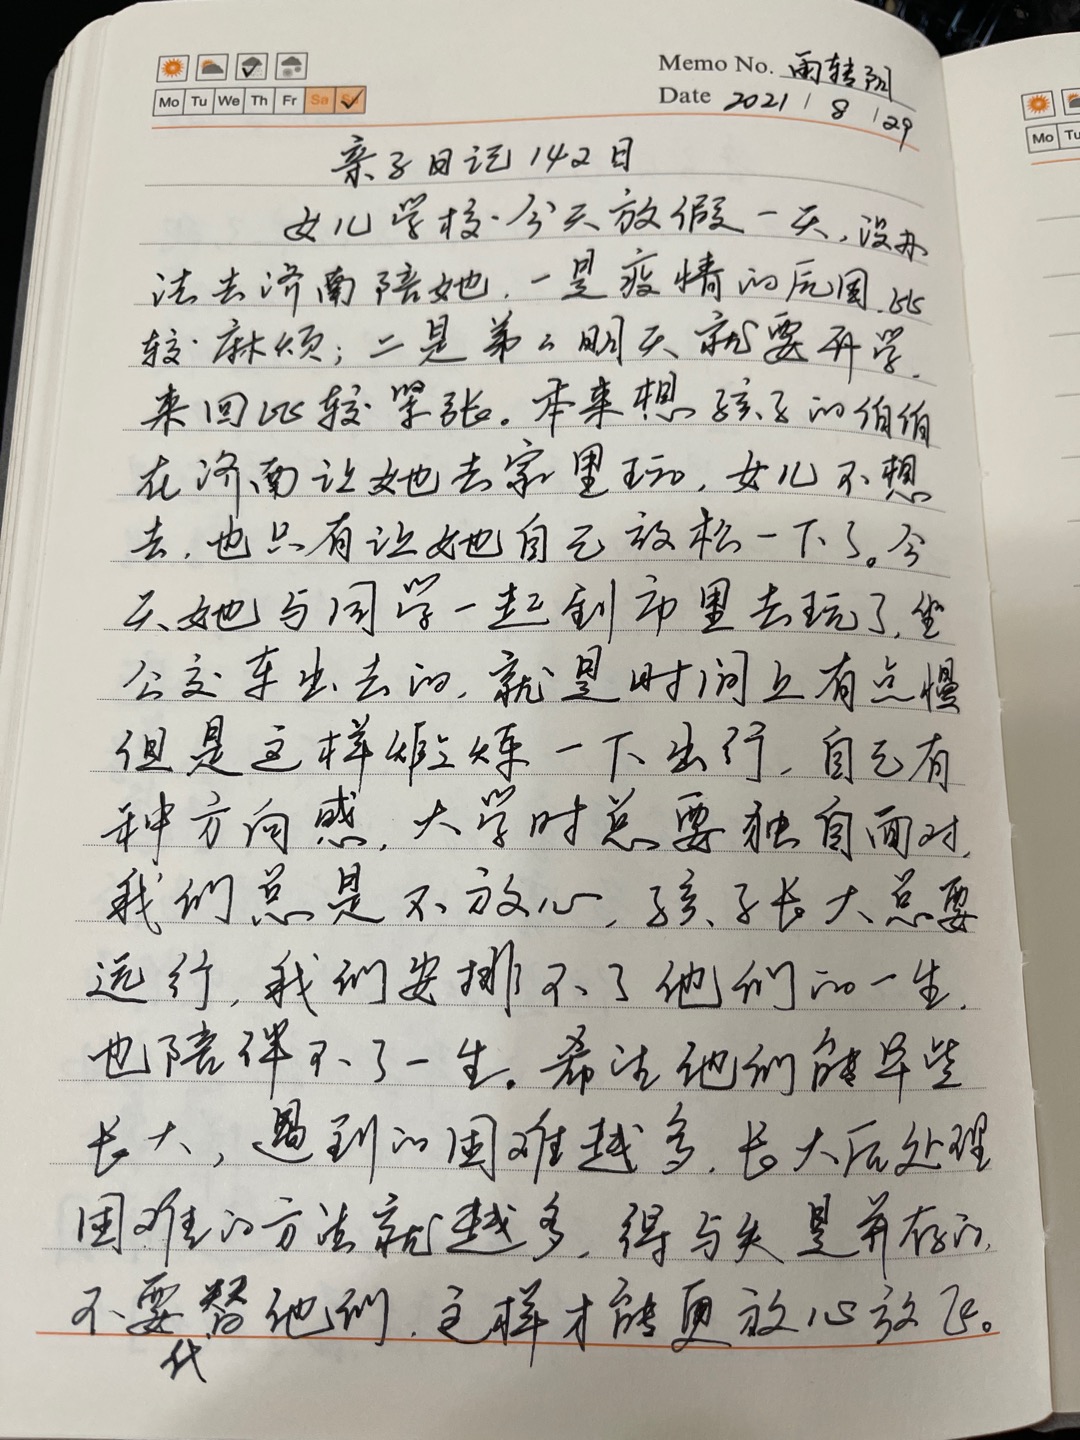 Memo No. 雨转阴
Mo Tu We Th Fr Sa
Date 2021 / 8 / 29
亲子日记142日
女儿学校今天放假一天,没办
法去济南陪她,一是疫情的原因,比
较麻烦;二是第二明天就要开学,
来回比较紧张。本来想孩子的伯伯
在济南让她去家里玩,女儿不想
去,也只有让她自己放松一下了。今
天她与同学一起到市里去玩了,坐
公交车出去的,就是时间上有点慢
但是这样锻炼一下出行,自己有
种方向感,大学时总要独自面对,
我们总是不放心,孩子长大总要
远行,我们安排不了他们的一生,
也陪伴不了一生。希望他们能早些
长大,遇到的困难越多,长大后处理
困难的方法就越多,得与失是并存的,
不要替他们,这样才能更放心放飞。
代
Mo Tu